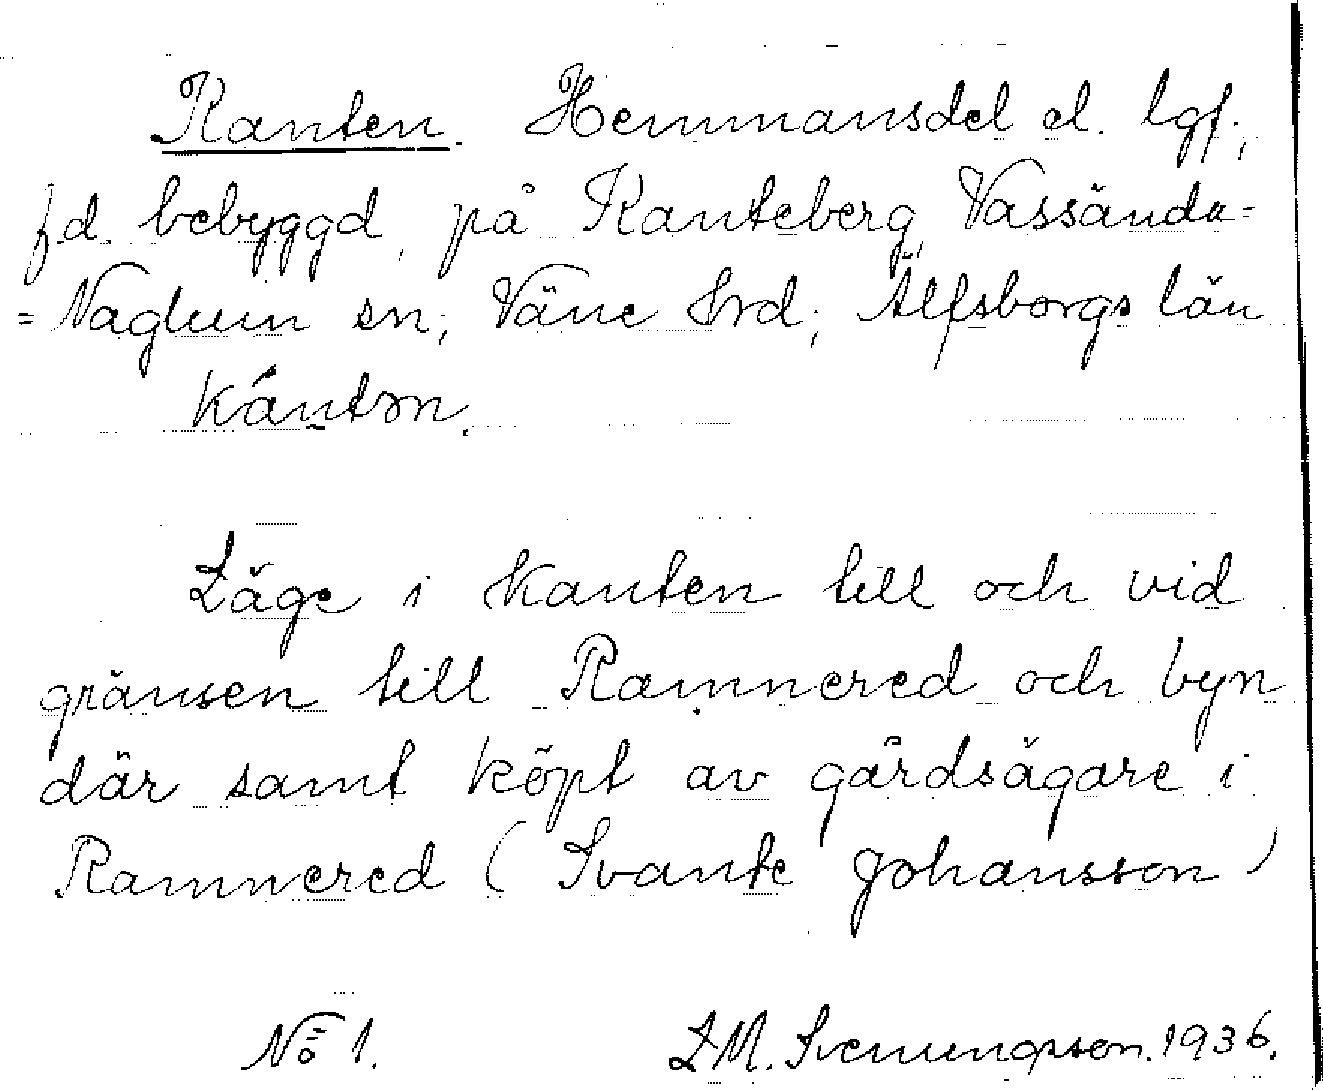 Kanten. Hemmansdel el. lgf.,
f.d. bebyggd, på Kanteberg, Vassända-
=Naglum sn; Väne hrd; Älfsborgs län
kántǝn.
Läge i kanten till och vid
gränsen till Ramnered och byn
där samt köpt av gårdsägare i
Ramnered (Svante Johansson)
No 1. L M. Svenungsson. 1936.